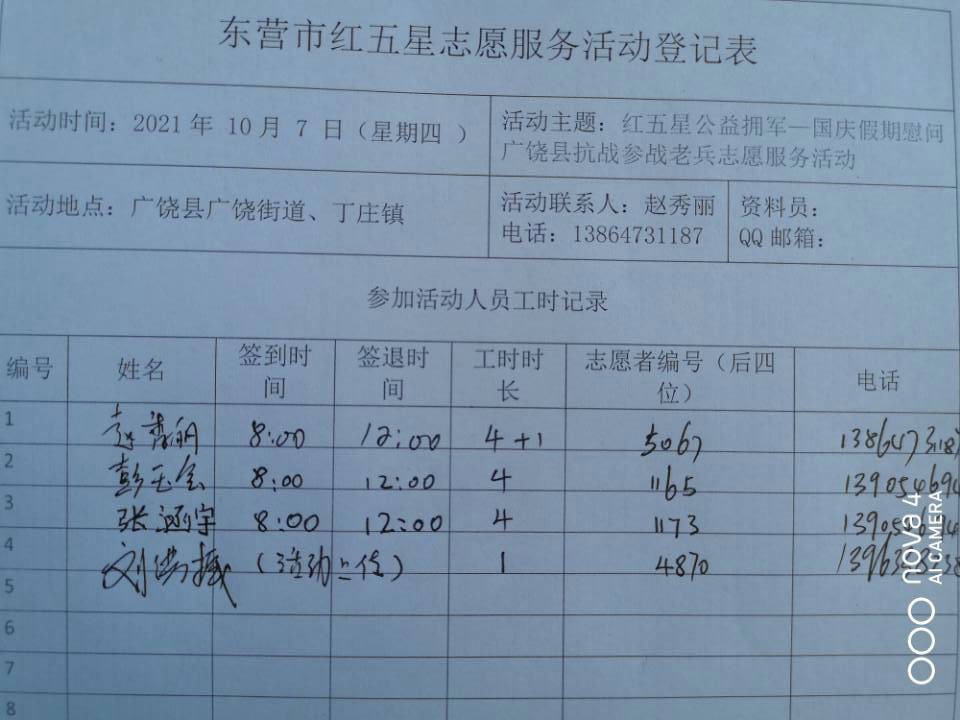 东营市红五星志愿服务活动登记表
活动时间：2021 年 10 月 7 日（星期四 ） 活动主题：红五星公益拥军—国庆假期慰问
广饶县抗战参战老兵志愿服务活动
活动地点：广饶县广饶街道、丁庄镇 活动联系人：赵秀丽 资料员：
电话：13864731187 QQ 邮箱：
参加活动人员工时记录
编号 姓名 签到时 签退时 工时时 志愿者编号（后四 电话
间 间 长 位）
1 赵秀丽 8:00 12:00 4+1 5067 13864731187
2 彭玉会 8:00 12:00 4 1165
3 张涵宇 8:00 12:00 4 1173
4 刘 （活动上传） 1 4870
5
6
7
8
nova 4
AI CAMERA